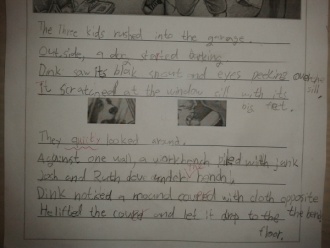 The three kids rushed into the garage.
Outside, a dog stopped barking.
Dink saw its blak snout and eyes peeking over
It scratched at the window sill with its
big feet.
They quickly looked around.
Against one wall, a workbench piled with junk
Josh and Ruth dove under
Dink noticed a mound covered with cloth opposite the bench
He lifted the cover and let it drop to the
floor.